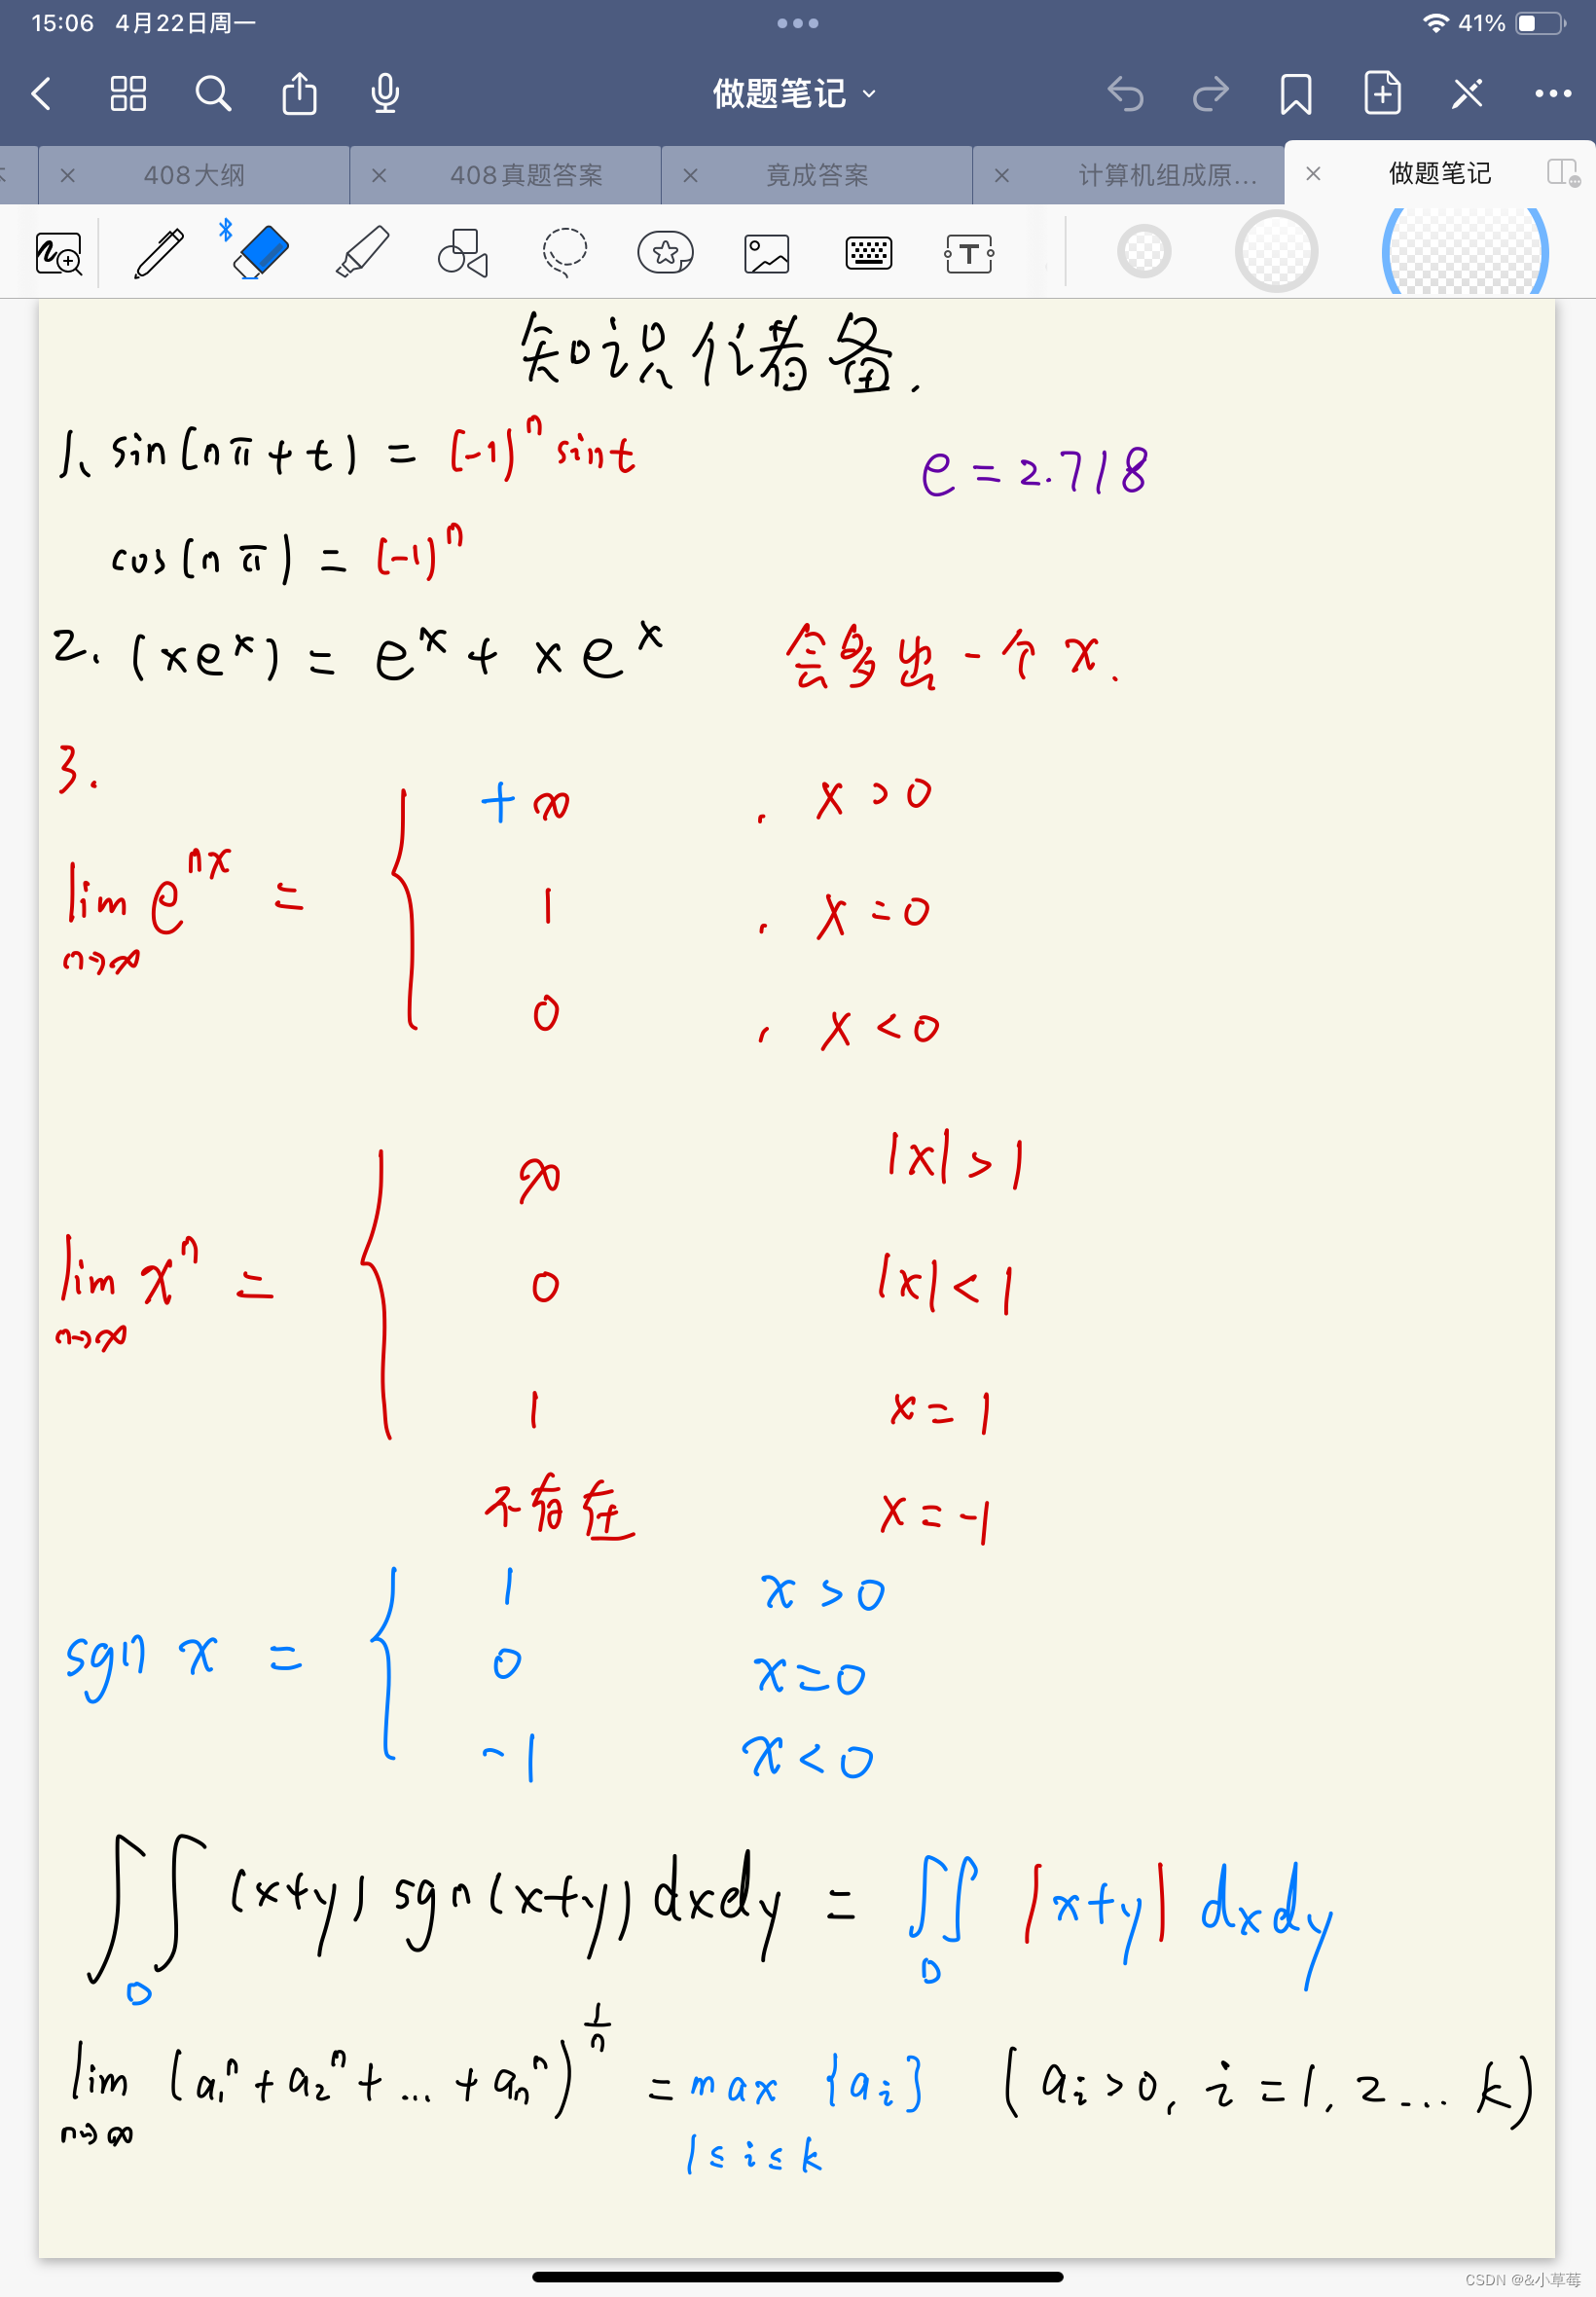 15:06 4月22日周一 41%
做题笔记
408大纲 408真题答案 竟成答案 计算机组成原... 做题笔记
知识储备.
1、sin(nπ+t) = (-1)^n sint
e = 2.718
cos(nπ) = (-1)^n
2. (xe^x) = e^x + xe^x 会多出一个x.
3.
lim e^{nx} = { +∞ , x>0
n→∞
1 , x=0
0 , x<0
∞ |x|>1
lim x^n = { 0 |x|<1
n→∞
1 x=1
不存在 x=-1
1 x>0
sgn x = { 0 x=0
-1 x<0
∬ (x+y) sgn(x+y) dxdy = ∬ |x+y| dxdy
D D
lim (a₁^n + a₂^n + ... + aₙ^n)^{1/n} = max {aᵢ} (aᵢ>0, i=1,2...k)
n→∞ 1≤i≤k
CSDN @&小草莓